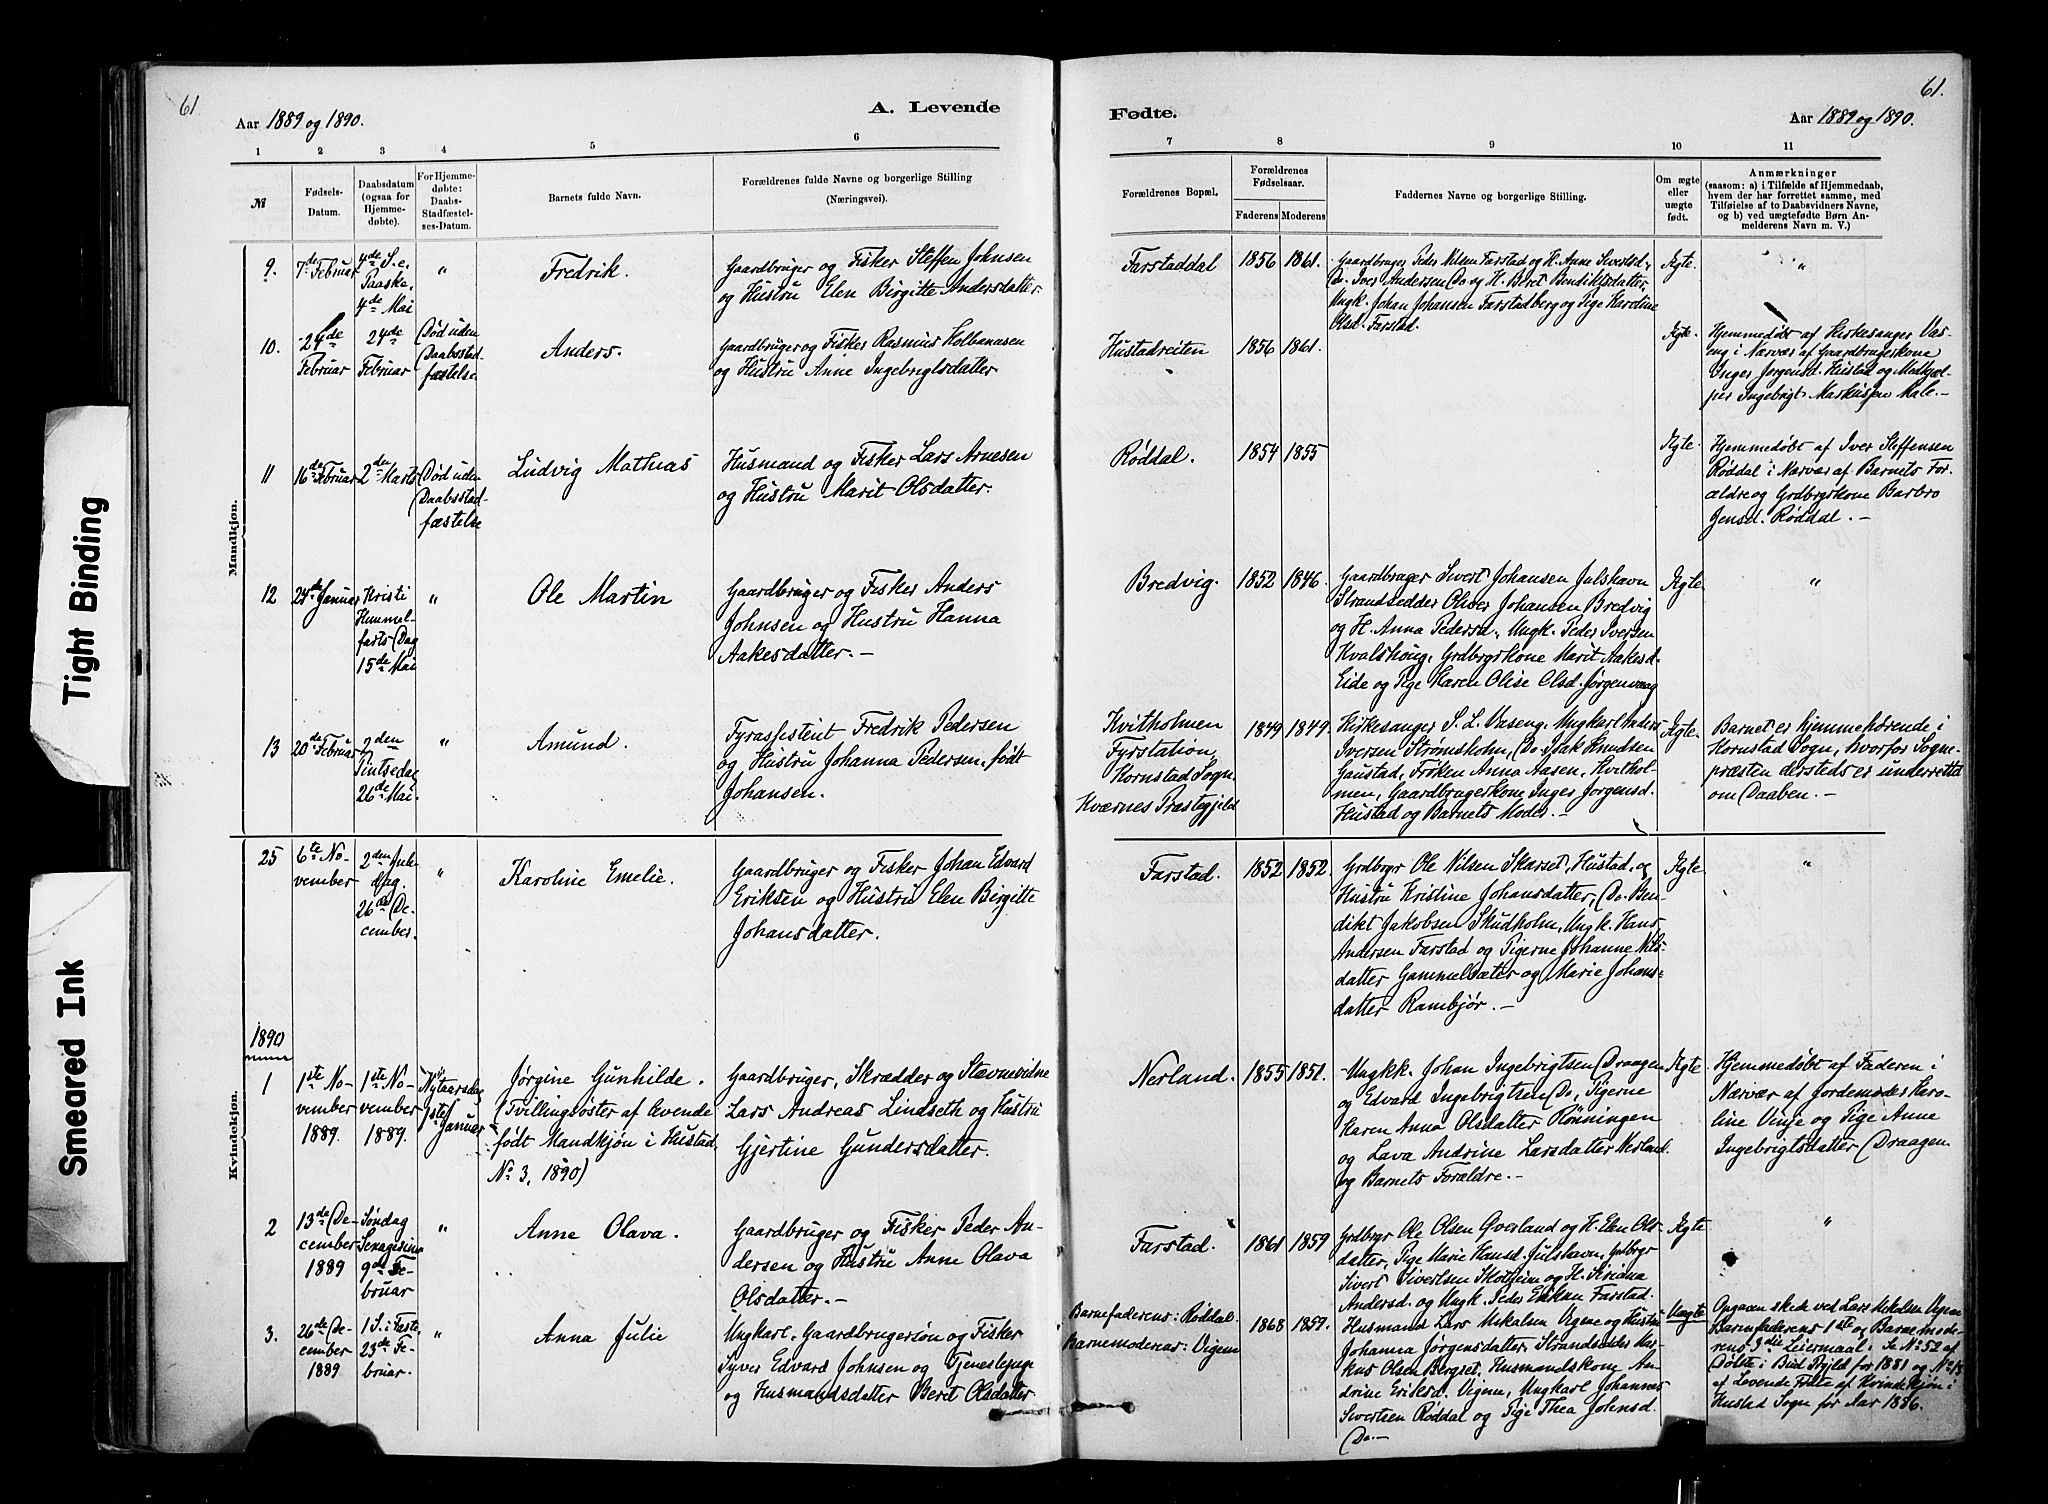 61.
Aar 1889 og 1890.
A. Levende
1 2 3 4 5 6
№
Fødsels-
Datum.
Daabsdatum
(ogsaa for
Hjemme-
døbte).
For Hjemme-
døbte:
Daabs-
Stadfæstel-
ses-Datum.
Barnets fulde Navn.
Forældrenes fulde Navne og borgerlige Stilling
(Næringsvei).
Mandkjøn.
9.
7de Februar
4de S. e.
Paaske,
4de Mai
"
Fredrik.
Gaardbruger og Fisker Steffen Johnsen
og Hustru Elen Birgitte Andersdatter.
10.
24de
Februar
24de
Februar
Død uden
Daabsstad-
fæstelse
Anders.
Gaardbruger og Fisker Rasmus Kolbanasen
og Hustru Anne Ingebrigtsdatter
11
16de Februar
2den Marts
Død uden
Daabsstad-
fæstelse
Ludvig Mathias
Husmand og Fisker Lars Arnesen
og Hustru Marit Olsdatter.
12
24de Januar
Kristi
Himmel-
farts Dag
15de Mai
"
Ole Martin
Gaardbruger og Fisker Anders
Johnsen og Hustru Hanna
Aakesdatter. —
13
20de Februar
2den
Pintsedag
26de Mai.
"
Amund.
Fyrassistent Fredrik Pedersen
og Hustru Johanna Pedersen, født
Johansen.
Kvindekjøn.
25
6te No-
vember
2den Jule-
dag.
26de De-
cember.
"
Karoline Emelie.
Gaardbruger og Fisker Johan Edvard
Eriksen og Hustru Elen Birgitte
Johansdatter.
1890
1
1ste No-
vember
1889.
1ste No-
vember
1889.
Nytaarsdag
1ste Januar
Jørgine Gunhilde.
(Tvillingsøster af levende
født Mandkjøn i Hustad
No 3, 1890)
Gaardbruger, Skrædder og Stævnevidne
Lars Andreas Lindseth og Hustru
Gjertine Gundersdatter.
2
13de De-
cember
1889
Søndag
Sexagesima
9de Fe-
bruar
"
Anne Olava.
Gaardbruger og Fisker Peder An-
dersen og Hustru Anne Olava
Olsdatter. —
3.
26de De-
cember
1889
1 S. i Faste
23de Fe-
bruar.
"
Anna Julie
Ungkarl, Gaardbrugersøn og Fisker
Syver Edvard Johnsen og Tjenestepige
og Husmandsdatter Beret Olsdatter
61.
Fødte.
Aar 1889 og 1890.
7 8 9 10 11
Forældrenes Bopæl.
Forældrenes
Fødselsaar.
Faderens Moderens
Faddernes Navne og borgerlige Stilling.
Om ægte
eller
uægte
født.
Anmærkninger
(saasom: a) i Tilfælde af Hjemmedaab,
hvem der har forrettet samme, med
Tilføielse af to Daabsvidners Navne,
og b) ved uægtefødte Børn An-
melderens Navn m. V.)
Farstaddal
1856 1861.
Gaardbruger Peder Nilsen Farstad og H. Anne Sivertsd.,
Do. Iver Andersen Do og H. Beret Bendiktsdatter,
Ungk. Johan Johansen Farstadberg og Pige Karoline
Olsd. Farstad.
Ægte.
"
Hustadreiten
1856 1861.
Ægte.
Hjemmedøbt af Kirkesanger Vas-
eng i Nærvær af Gaardbrugerkone
Inger Jørgensd. Hustad og Medhjæl-
per Ingebrigt Markussen Male. —
Røddal.
1854 1855
Ægte.
Hjemmedøbt af Iver Steffensen
Røddal i Nærvær af Barnets For-
ældre og Grdbrgrkone Barbro
Jensd. Røddal. —
Bredvig.
1852 1846.
Gaardbruger Sivert Johansen Julshavn
Strandsidder Oliver Johansen Bredvig
og H. Anna Pedersd., Ungk. Peder Iversen
Kvalshoug, Grdbrgrkone Marit Aakesd.
Eide og Pige Karen Olise Olsd. Jørgenvaag
Ægte.
"
Kvitholmen
Fyrstation,
Kornstad Sogn,
Kværnes Præstegjeld
1849 1849.
Kirkesanger S. L. Vaseng, Ungkarl Anders
Iversen Strømsholm, Do. Isak Knudsen
Gaustad, Frøken Anna Aasen, Kvithol-
men, Gaardbrugerkone Inger Jørgensd.
Hustad og Barnets Moder. —
Ægte.
Barnet er hjemmehørende i
Kornstad Sogn, hvorfor Sogne-
præsten dersteds er underrettet
om Daaben. —
Farstad.
1852 1852.
Grdbrgr Ole Nilsen Skarset, Hustad, og
Hustru Kristine Johansdatter, Do. Ben-
dikt Jakobsen Skudholm, Ungk. Hans
Andersen Farstad og Pigerne Johanne Nils-
datter Gammelsæter og Marie Johans-
datter Rambjør. —
Ægte.
"
Nerland.
1855 1851.
Ungkk. Johan Ingebrigtsen Draagen
og Edvard Ingebrigtsen Do, Pigerne
Karen Anna Olsdatter Rønningen
og Lava Andrine Larsdatter Nerland
og Barnets Forældre. —
Ægte
Hjemmedøbt af Faderen i
Nærvær af Jordemoder Karo-
line Vinje og Pige Anne
Ingebrigtsdatter Draagen
Farstad.
1861 1859
Grdbrgr Ole Olsen Øverland og H. Elen Ols-
datter, Pige Marie Hansd. Julshavn, Grdbrgr
Sivert Sivertsen Skotheim og H.
Andersd. og Ungk. Peder Farstad.
Ægte
"
Barnefaderens: Røddal.
Barnemoderens: Vigem
1868 1859.
Husmand Lars Mikalsen Vigem og Hustru
Johanna Jørgensdatter, Strandsidder Mar-
kus Olsen Bergset, Husmandskone An-
drine Eriksd. Vigem, Ungkarl Johannes
Sivertsen Røddal og Pige Thea Johnsd.
Do. —
Uægte
Opgaven skede ved Lars Mikalsen Vigem
Barnefaderens 1ste og Barnemode-
rens 3die Leiermaal. Se No 52 af
Døbte i Bud Prgjld for 1881 og No 13
af Levende Fødte af Kvindekjøn i
Hustad Sogn for Aar 1886.
Tight Binding
Smeared Ink